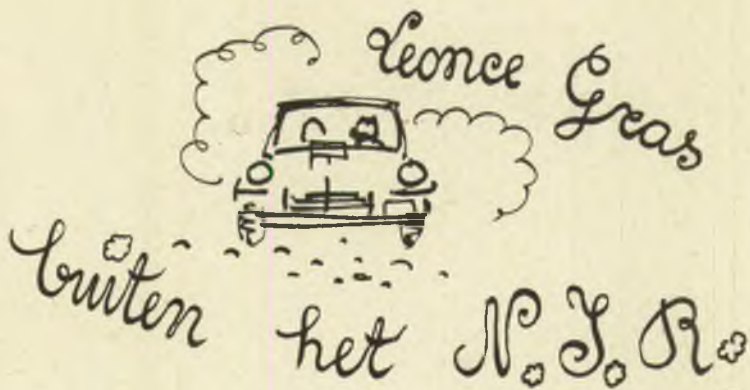 Leonce Gras
buiten het N.I.R.